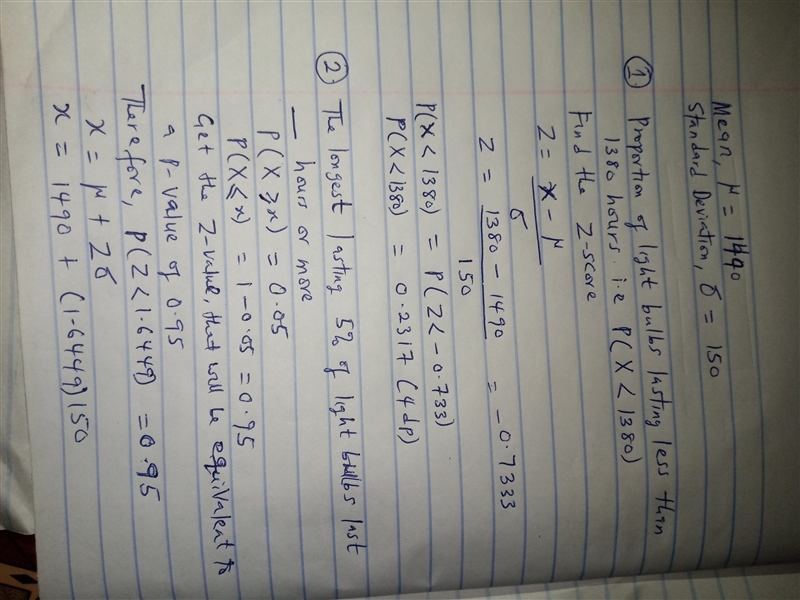 Mean, μ = 1490
Standard Deviation, σ = 150
① Proportion of light bulbs lasting less than
1380 hours i.e P(X < 1380)
Find the Z-score
Z = x - μ
σ
Z = 1380 - 1490 = -0.7333
150
P(X < 1380) = P(Z < -0.733)
P(X < 1380) = 0.2317 (4dp)
② The longest lasting 5% of light bulbs last
___ hours or more
P(X ≥ x) = 0.05
P(X ≤ x) = 1 - 0.05 = 0.95
Get the Z-value, that will be equivalent to
a p-value of 0.95
Therefore, P(Z < 1.6449) = 0.95
x = μ + Zσ
x = 1490 + (1.6449)150